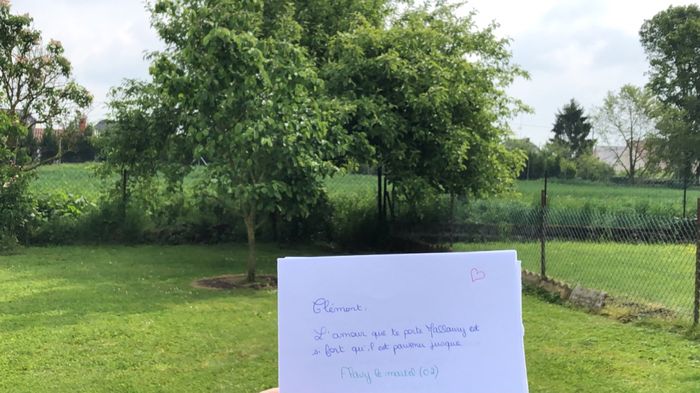 Clément,
L'amour que te porte Mallaury est
si fort qu'il est parvenu jusque
Flavy le martel (02)